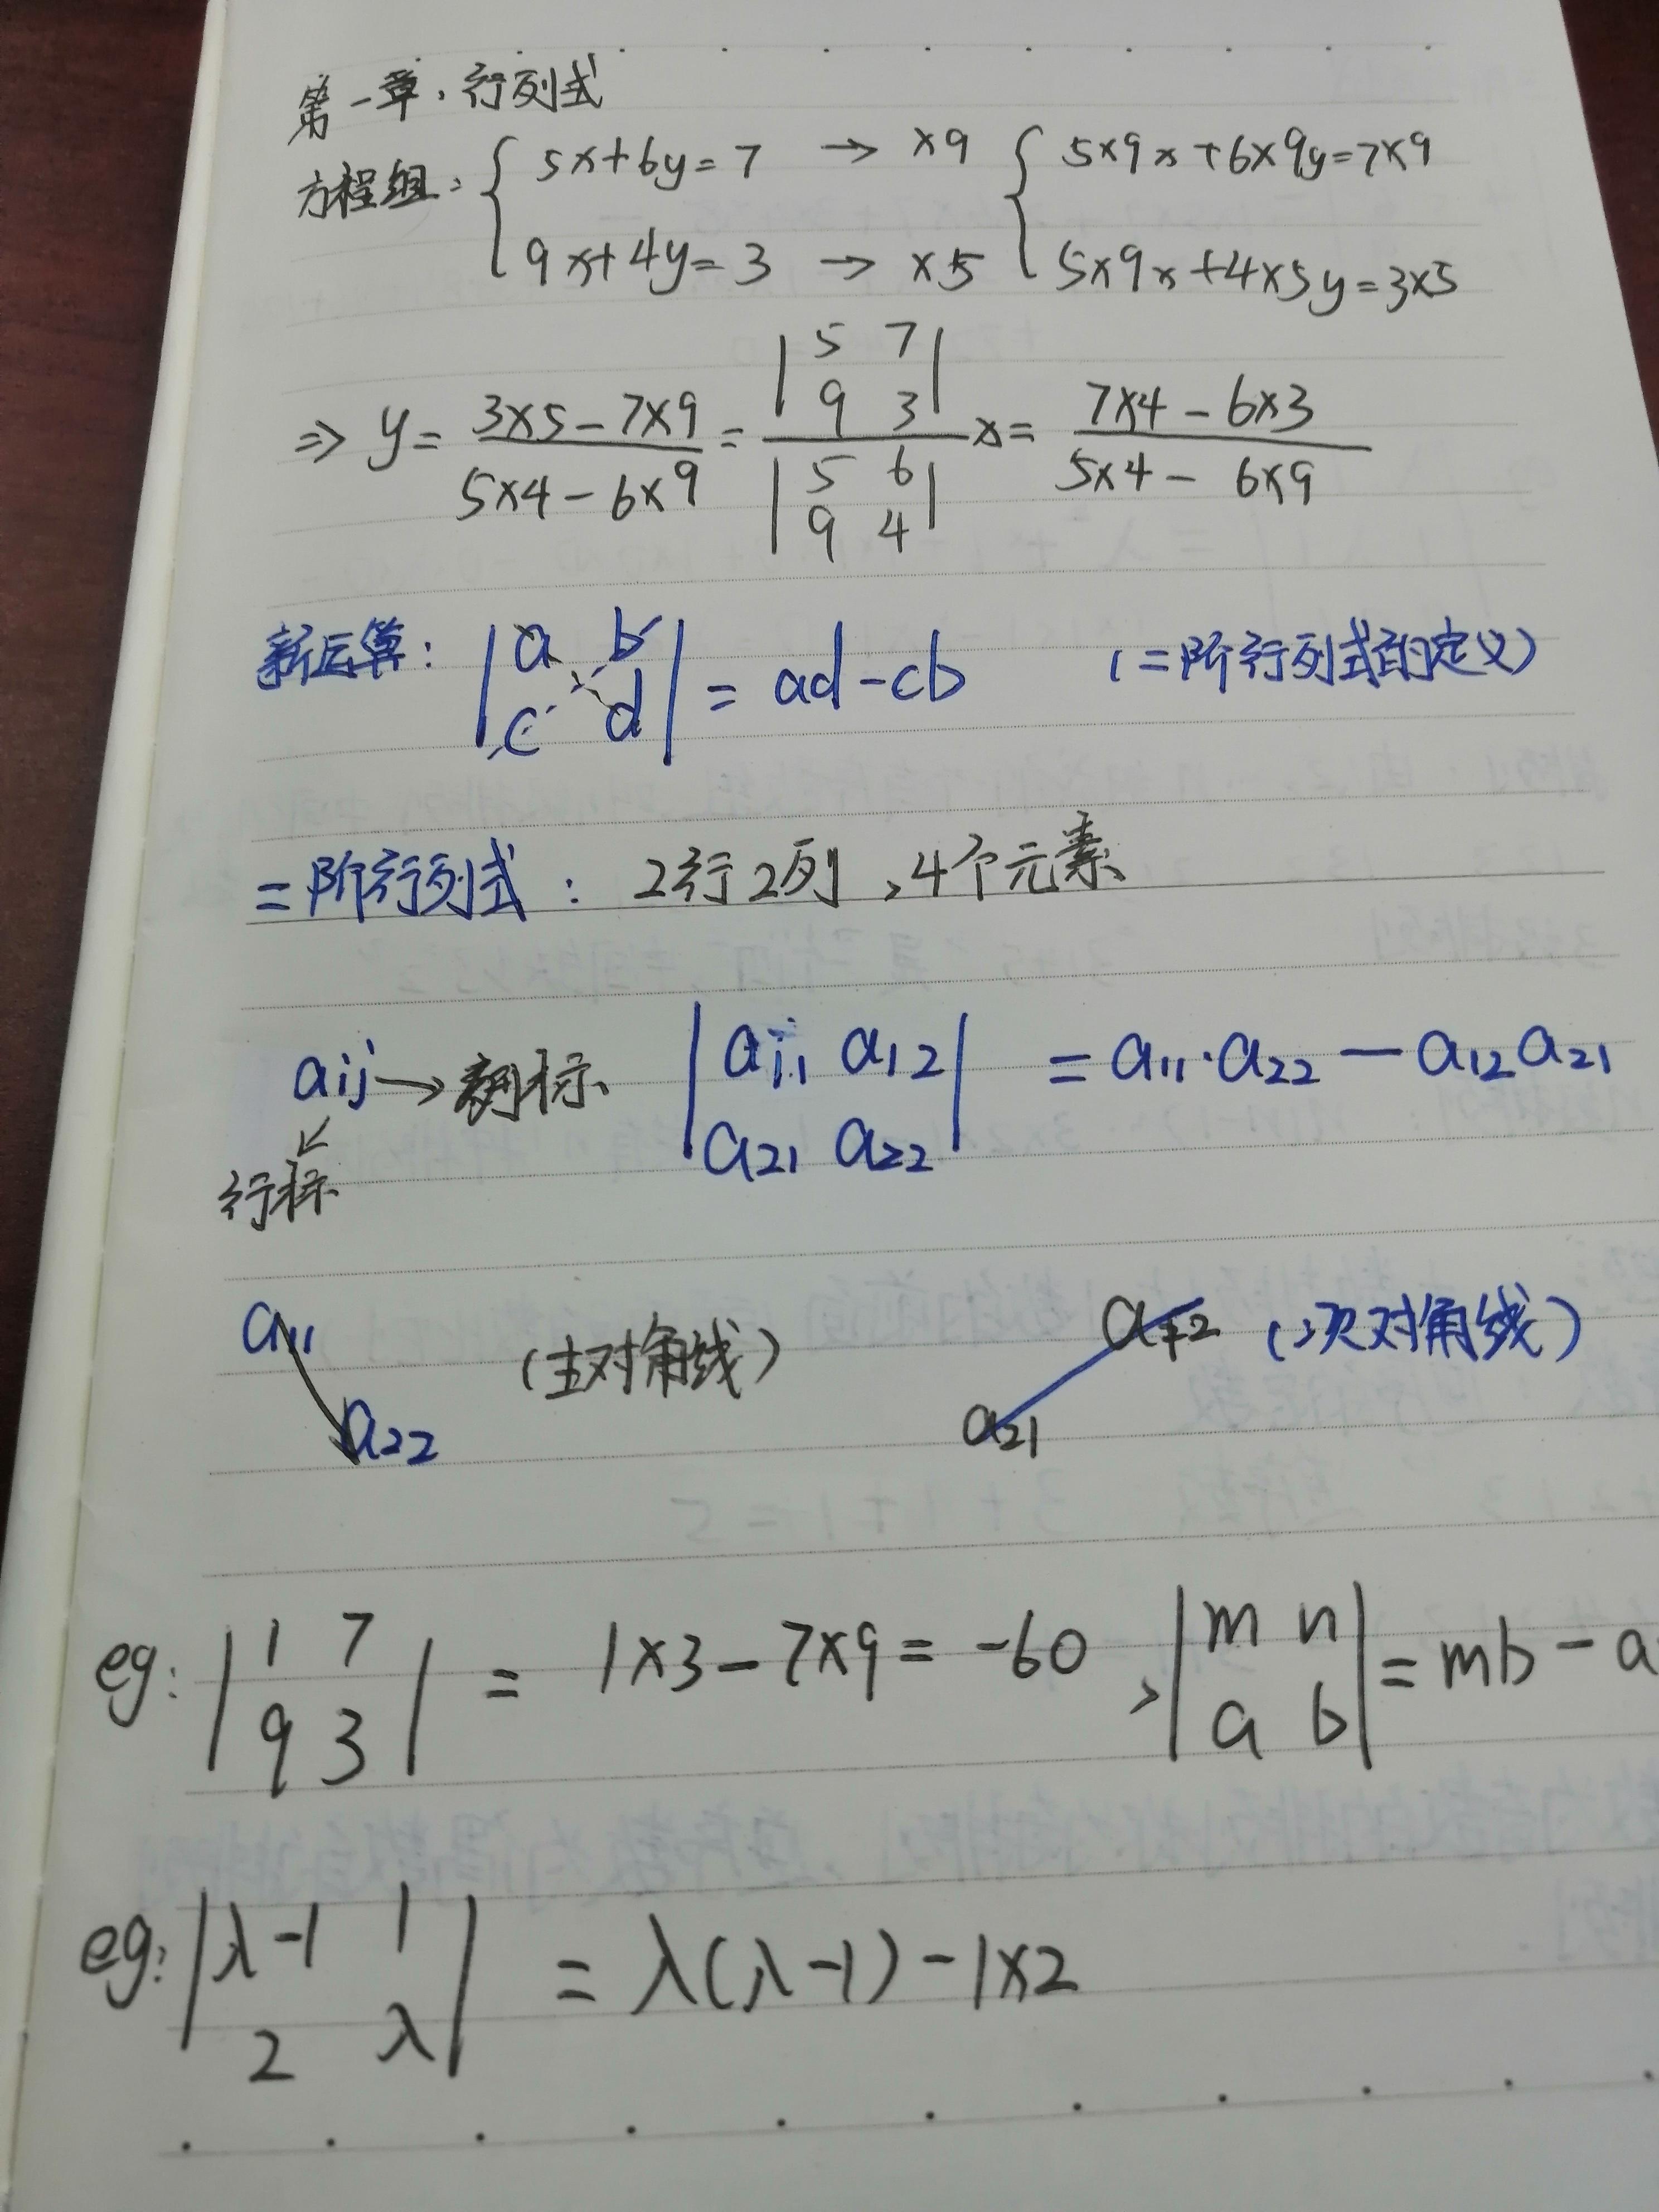 第一章，行列式
方程组：{5x+6y=7 → ×9 {5×9x+6×9y=7×9
9x+4y=3 → ×5 5×9x+4×5y=3×5
⇒ y= (3×5-7×9)/(5×4-6×9) = |5 7; 9 3|/|5 6; 9 4| x= (7×4-6×3)/(5×4-6×9)
新运算： |a b; c d| = ad-cb （二阶行列式的定义）
二阶行列式： 2行2列，4个元素
aij→列标 |a11 a12; a21 a22| = a11·a22 - a12a21
行标
a11 （主对角线） a12 （次对角线）
a22 a21
eg: |1 7; 9 3| = 1×3-7×9= -60 , |m n; a b| = mb-a
eg: |λ-1 1; 2 λ| = λ(λ-1)-1×2